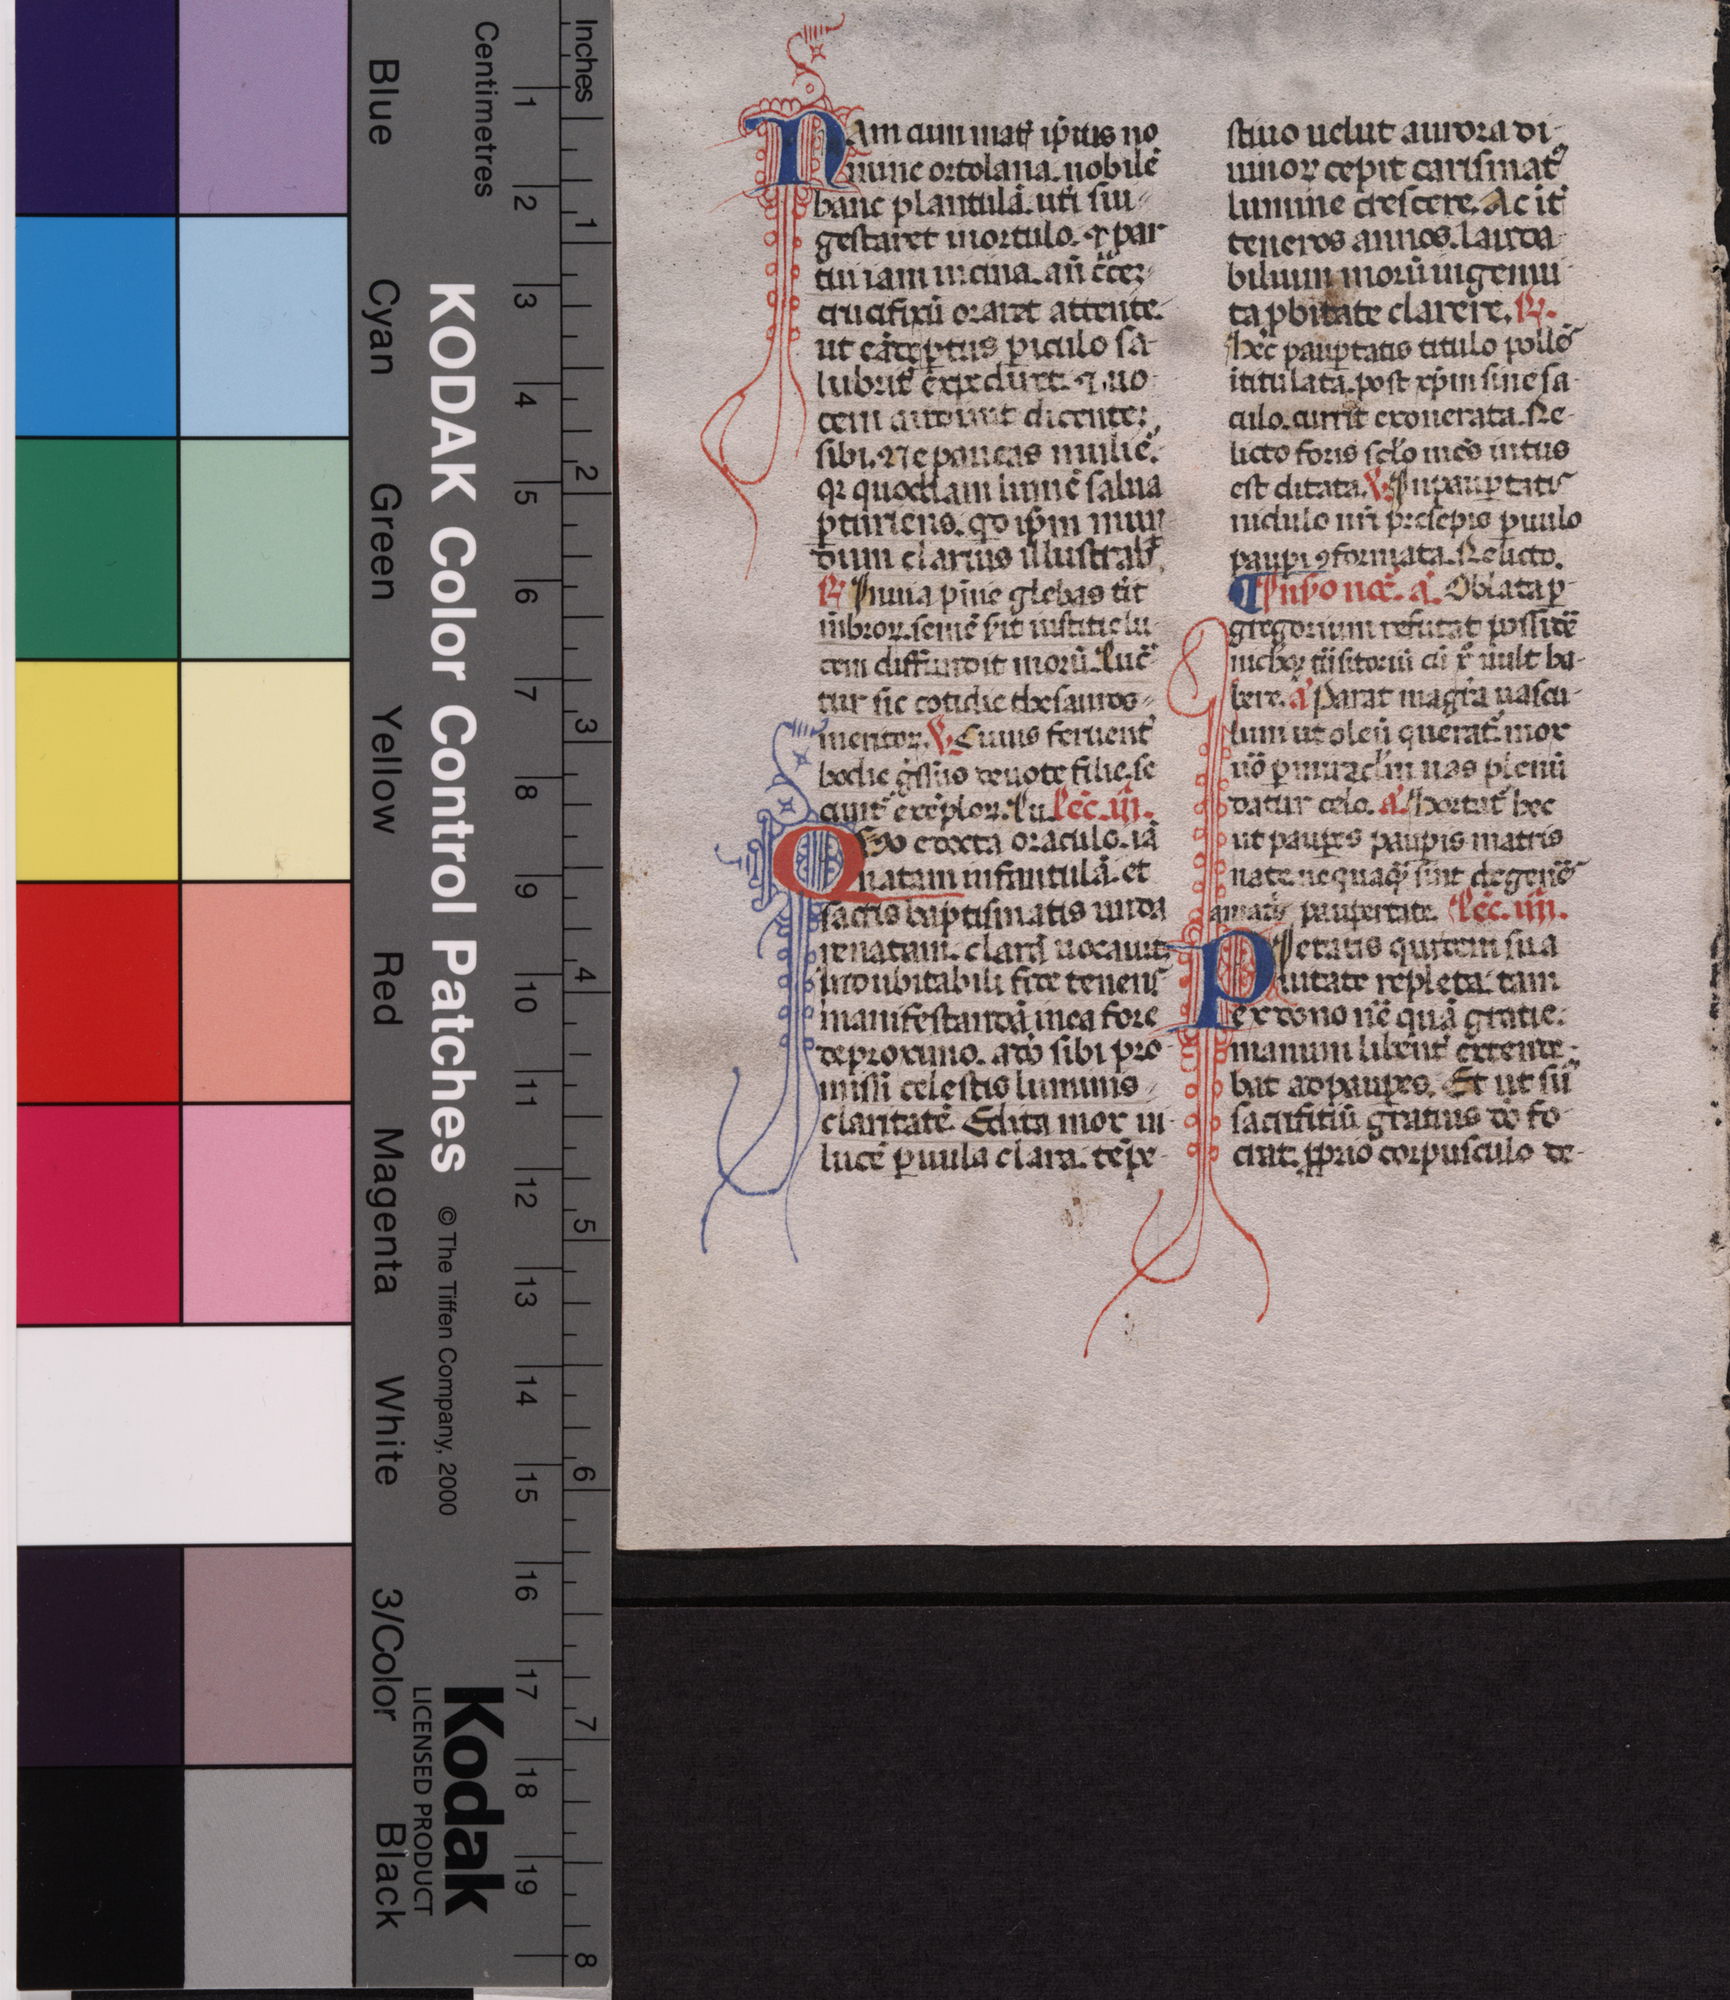 Inches
Centimetres
KODAK Color Control Patches
© The Tiffen Company, 2000
Kodak
LICENSED PRODUCT
Blue
Cyan
Green
Yellow
Red
Magenta
White
3/Color
Black
1 2 3 4 5 6 7 8 9 10 11 12 13 14 15 16 17 18 19
1 2 3 4 5 6 7 8
Nam cum mat ip̄ius no
mine ortolana. nobilē
hanc plantulā. uti sui
gestaret in ortulo. ⁊ par
tui iam uicina. an̄ c̄cē
crucifixū oraret attente.
ut eā p̄tus piculo sa
lubrit expediret. ⁊ uo
cem audiuit dicentē
sibi. Ne paueas mulier.
qr quoddam lumē salua
pturiens. qo ip̄m mun
dum clarius illustrab̄.
R. Innia pine glebas tit
imbrox. semē sic institie lu
cem diffundit morū. Luc̄
tur sic cotidie thesauros
mentor. V. Cuius feruent
hodie gͥssus deuote filie. se
cunt exēplox. Lu. Lec̄. iii.
Quo edocta oraculo. iā
natam infantulā. et
sacris baptismatis unda
renatam. clarā uocauit.
indubitabili fide tenens
manifestandā in ea fore
de proximo. adō sibi pro
missi celestis luminis
claritatē. Edita mox in
lucē puula clara. tēpe
stiuo uelut aurora di
uinox cepit carismat
lumine crescere. Ac it
teneros annos. lauda
bilium morū ingenui
ta pbitate clarere. R.
Hec pauptatis titulo pollē
ititulata. post xp̄m sine sa
culo. currit exonerata. Re
licto foris sclo mēs intus
est ditata. V. In pauptatis
nidulo nr̄i presepis puulo
paupi ꝯformata. Relicto.
¶ In so noc̄. a. Oblata p
gregorium refutat possitē
nichox tn̄sitoriū cū x̄ uult ha
bere. a Parat magra uascu
lum ut oleū querat. mox
uō p miraclm uas plenū
datur celo. a. Hortat hec
ut paupes paupis matris
nate nequaq̄ sint degenē
amatis paupertate. Lec̄. iiii.
Petatis quidem sua
uitate repleta. tam
ex dono nē quā gratie.
manum libent extende
bat ad paupes. Et ut sū
sacrifitiū gratius dō fo
cint. pprio corpusculo de